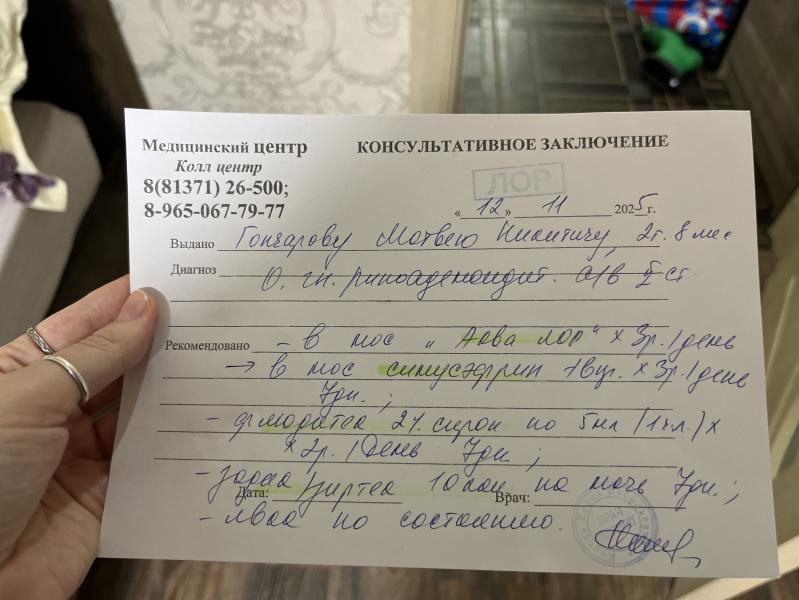 Медицинский центр
Колл центр
8(81371) 26-500;
8-965-067-79-77
КОНСУЛЬТАТИВНОЕ ЗАКЛЮЧЕНИЕ
ЛОР
«12» 11 2025г.
Выдано Гончарову Матвею Никитичу, 2г. 8 мес
Диагноз О. гн. риноаденоидит. a/в II ст.
Рекомендовано - в нос "Аква лор" x 3р./день
→ в нос синуэффрин 1 вп. x 3р./день
7дн.;
- флюдитек 2% сироп по 5мл (1 ч.л.) x
x 2р./день 7дн;
- зодак/зиртек 10 кап на ночь 7дн.;
Дата: Врач:
- явка по состоянию.
ВРАЧ